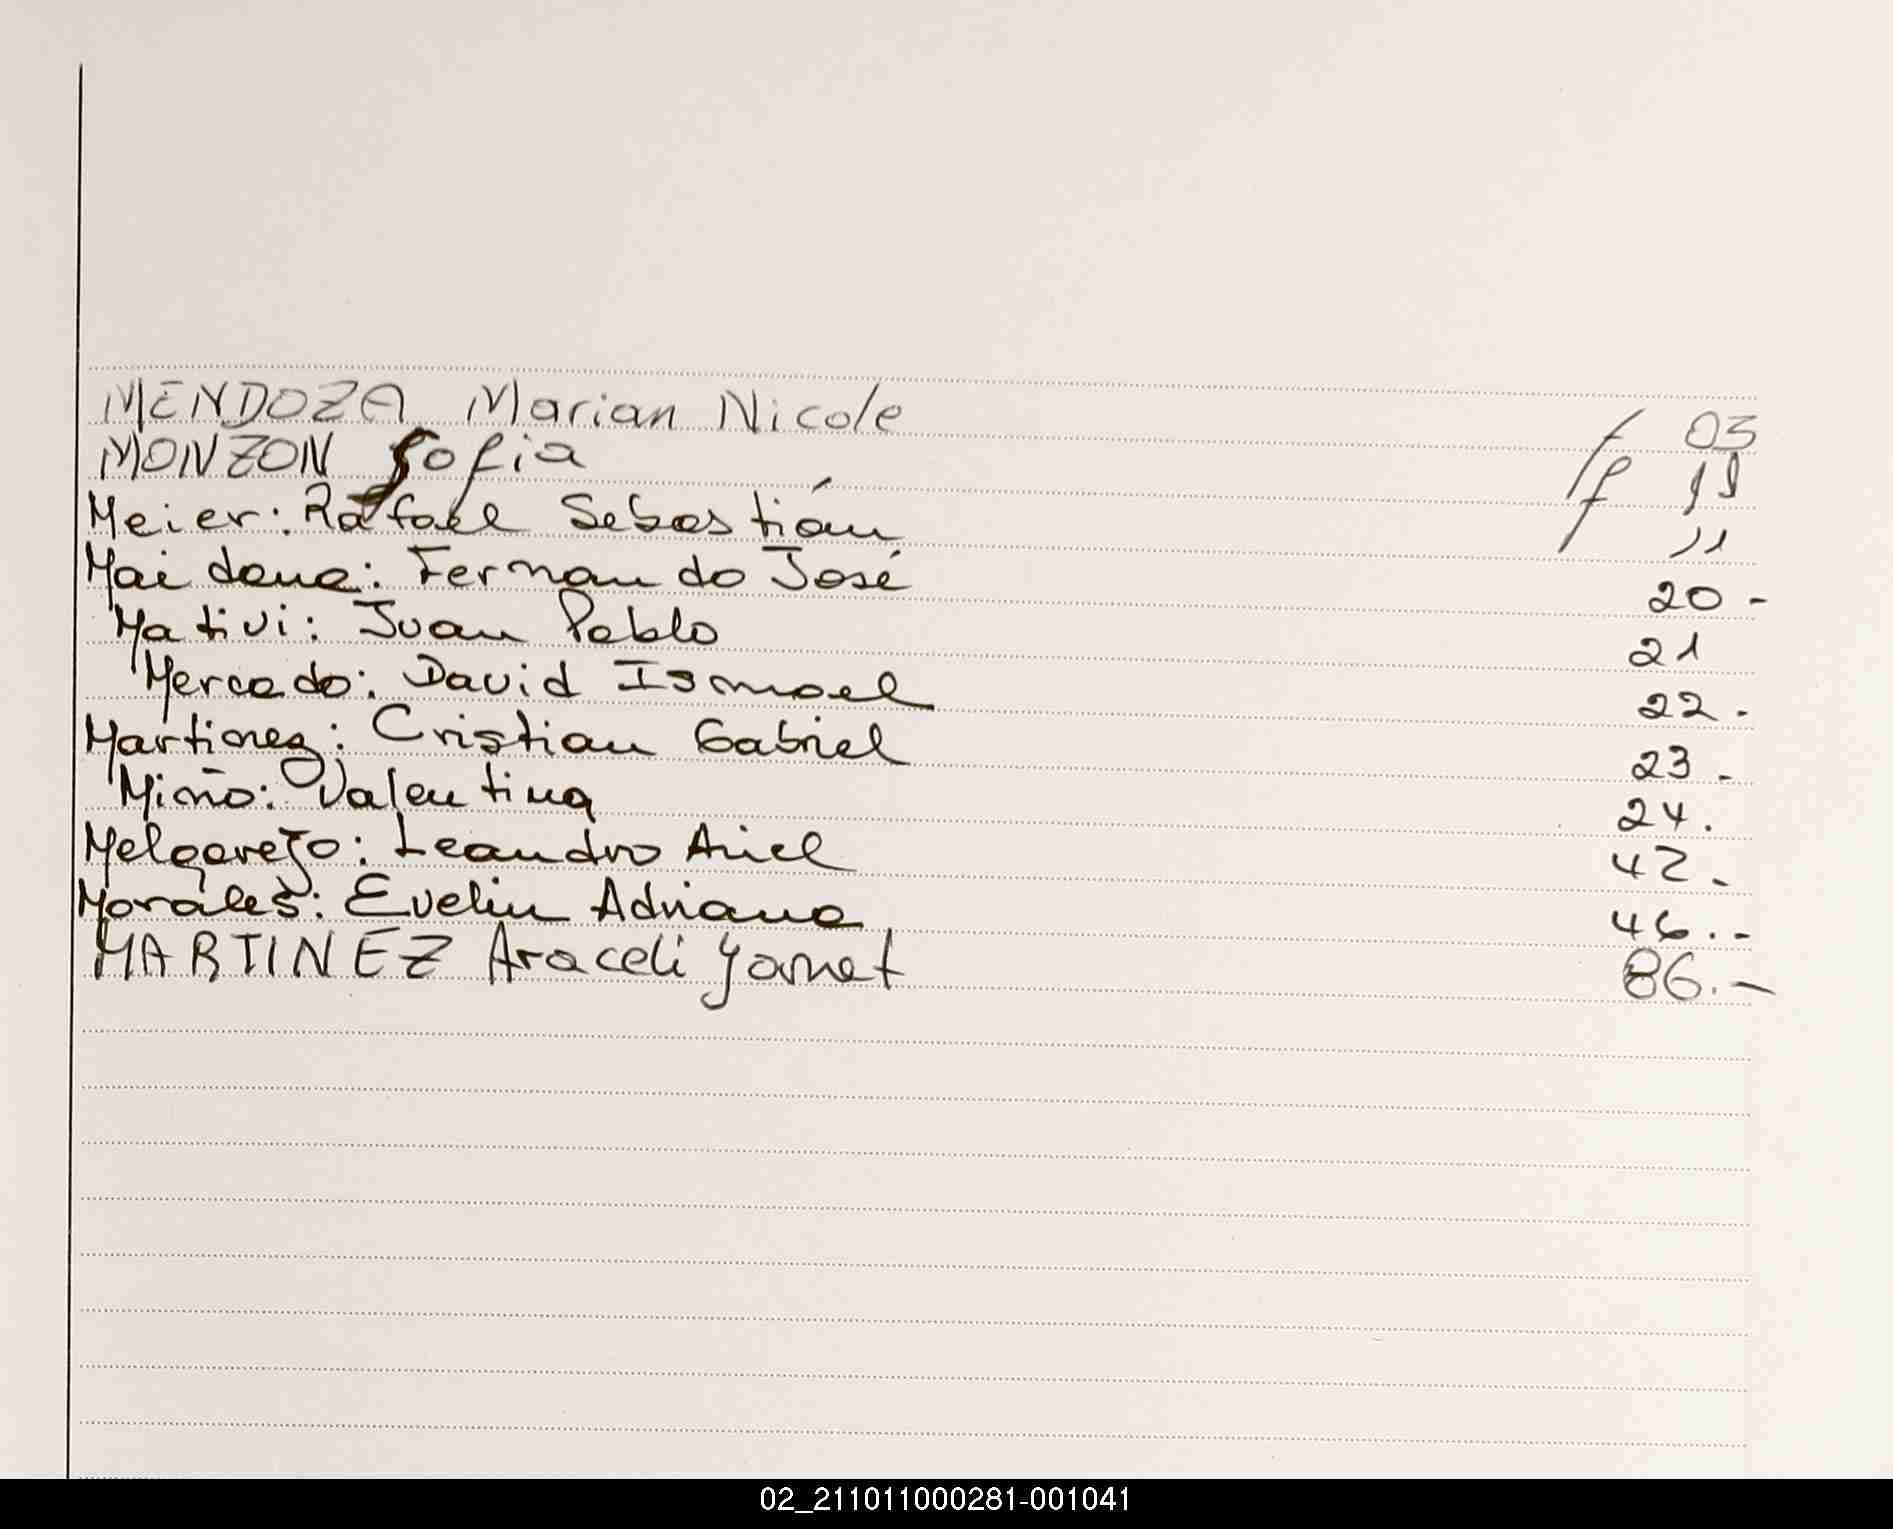 MENDOZA Marian Nicole f 03
MONZON Sofia f
Meier: Rafael Sebastián f 11
Maidana: Fernando José 20 -
Mativi: Juan Pablo 21
Mercado: David Ismael 22 -
Martinez: Cristian Gabriel 23 -
Miño: Valentina 24.
Melgarejo: Leandro Ariel 42 -
Morales: Evelin Adriana 46.-
MARTINEZ Araceli Yamet 86.-
02_211011000281-001041